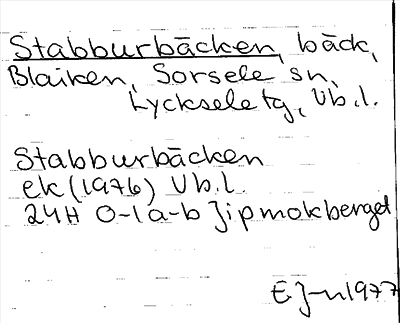 Stabburbäcken, bäck,
Blaiken, Sorsele sn,
Lycksele tg, Vb.l.
Stabburbäcken
ek (1976) Vb.l.
24H 0-1a-b Jipmokberget
E.J-n 1977